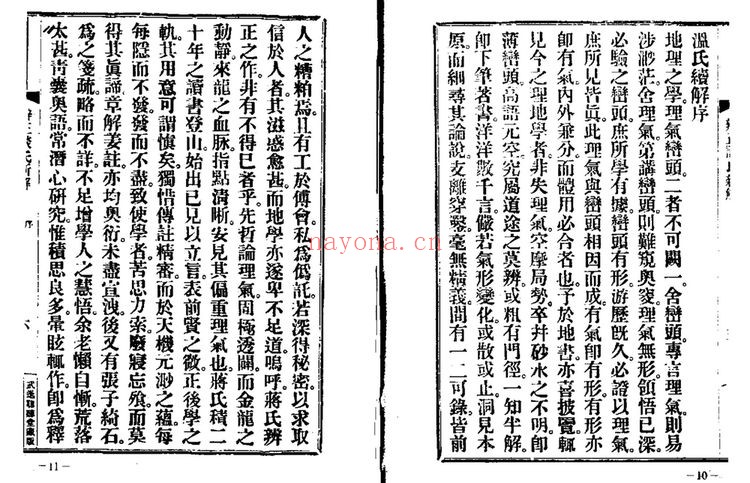 溫氏續解序
地理之學理氣巒頭二者不可闕一舍巒頭專言理氣則易
涉渺茫舍理氣第講巒頭則難窺奧窔理氣無形領悟已深
必驗之巒頭庶所學有據巒頭有形游歷旣久必證以理氣
庶所見皆眞此理氣與巒頭相因而成有氣卽有形有形亦
卽有氣內外兼分而體用必合者也予於地書亦喜披覽輒
見今之理地學者非失理氣空摩局勢卒幷砂水之不明卽
薄巒頭高語元空究屬道途之莫辨或粗有門徑一知半解
卽下筆著書洋洋數千言儼若氣形變化或散或止洞見本
原而細尋其論說支離穿鑿毫無精義間有一二可錄皆前
人之糟粕焉且有工於傅會私爲僞託若深得秘密以求取
信於人者其滋惑愈甚而地學亦遂卑不足道嗚呼蔣氏辨
正之作非有不得已者乎先哲論理氣固極透闢而金龍之
動靜來龍之血脉指點清晰安見其偏重理氣也蔣氏積二
十年之讀書登山始出已見以立言表前賢之徵正後學之
軌其用意可謂慎矣獨惜傳註精審而於天機元渺之蘊每
每隱而不發發而不盡致使學者苦思力索廢寢忘飧而莫
得其眞諦章解姜註亦均奧衍未盡宣洩後又有張子綺石
爲之箋疏略而不詳不足增學人之慧悟余老懶自慚荒落
太甚靑囊奧語常潛心研究惟積思良多暈眩輒作卽爲釋
序
六
武進琅嬛堂藏版
—11—
—10—
nayona.cn